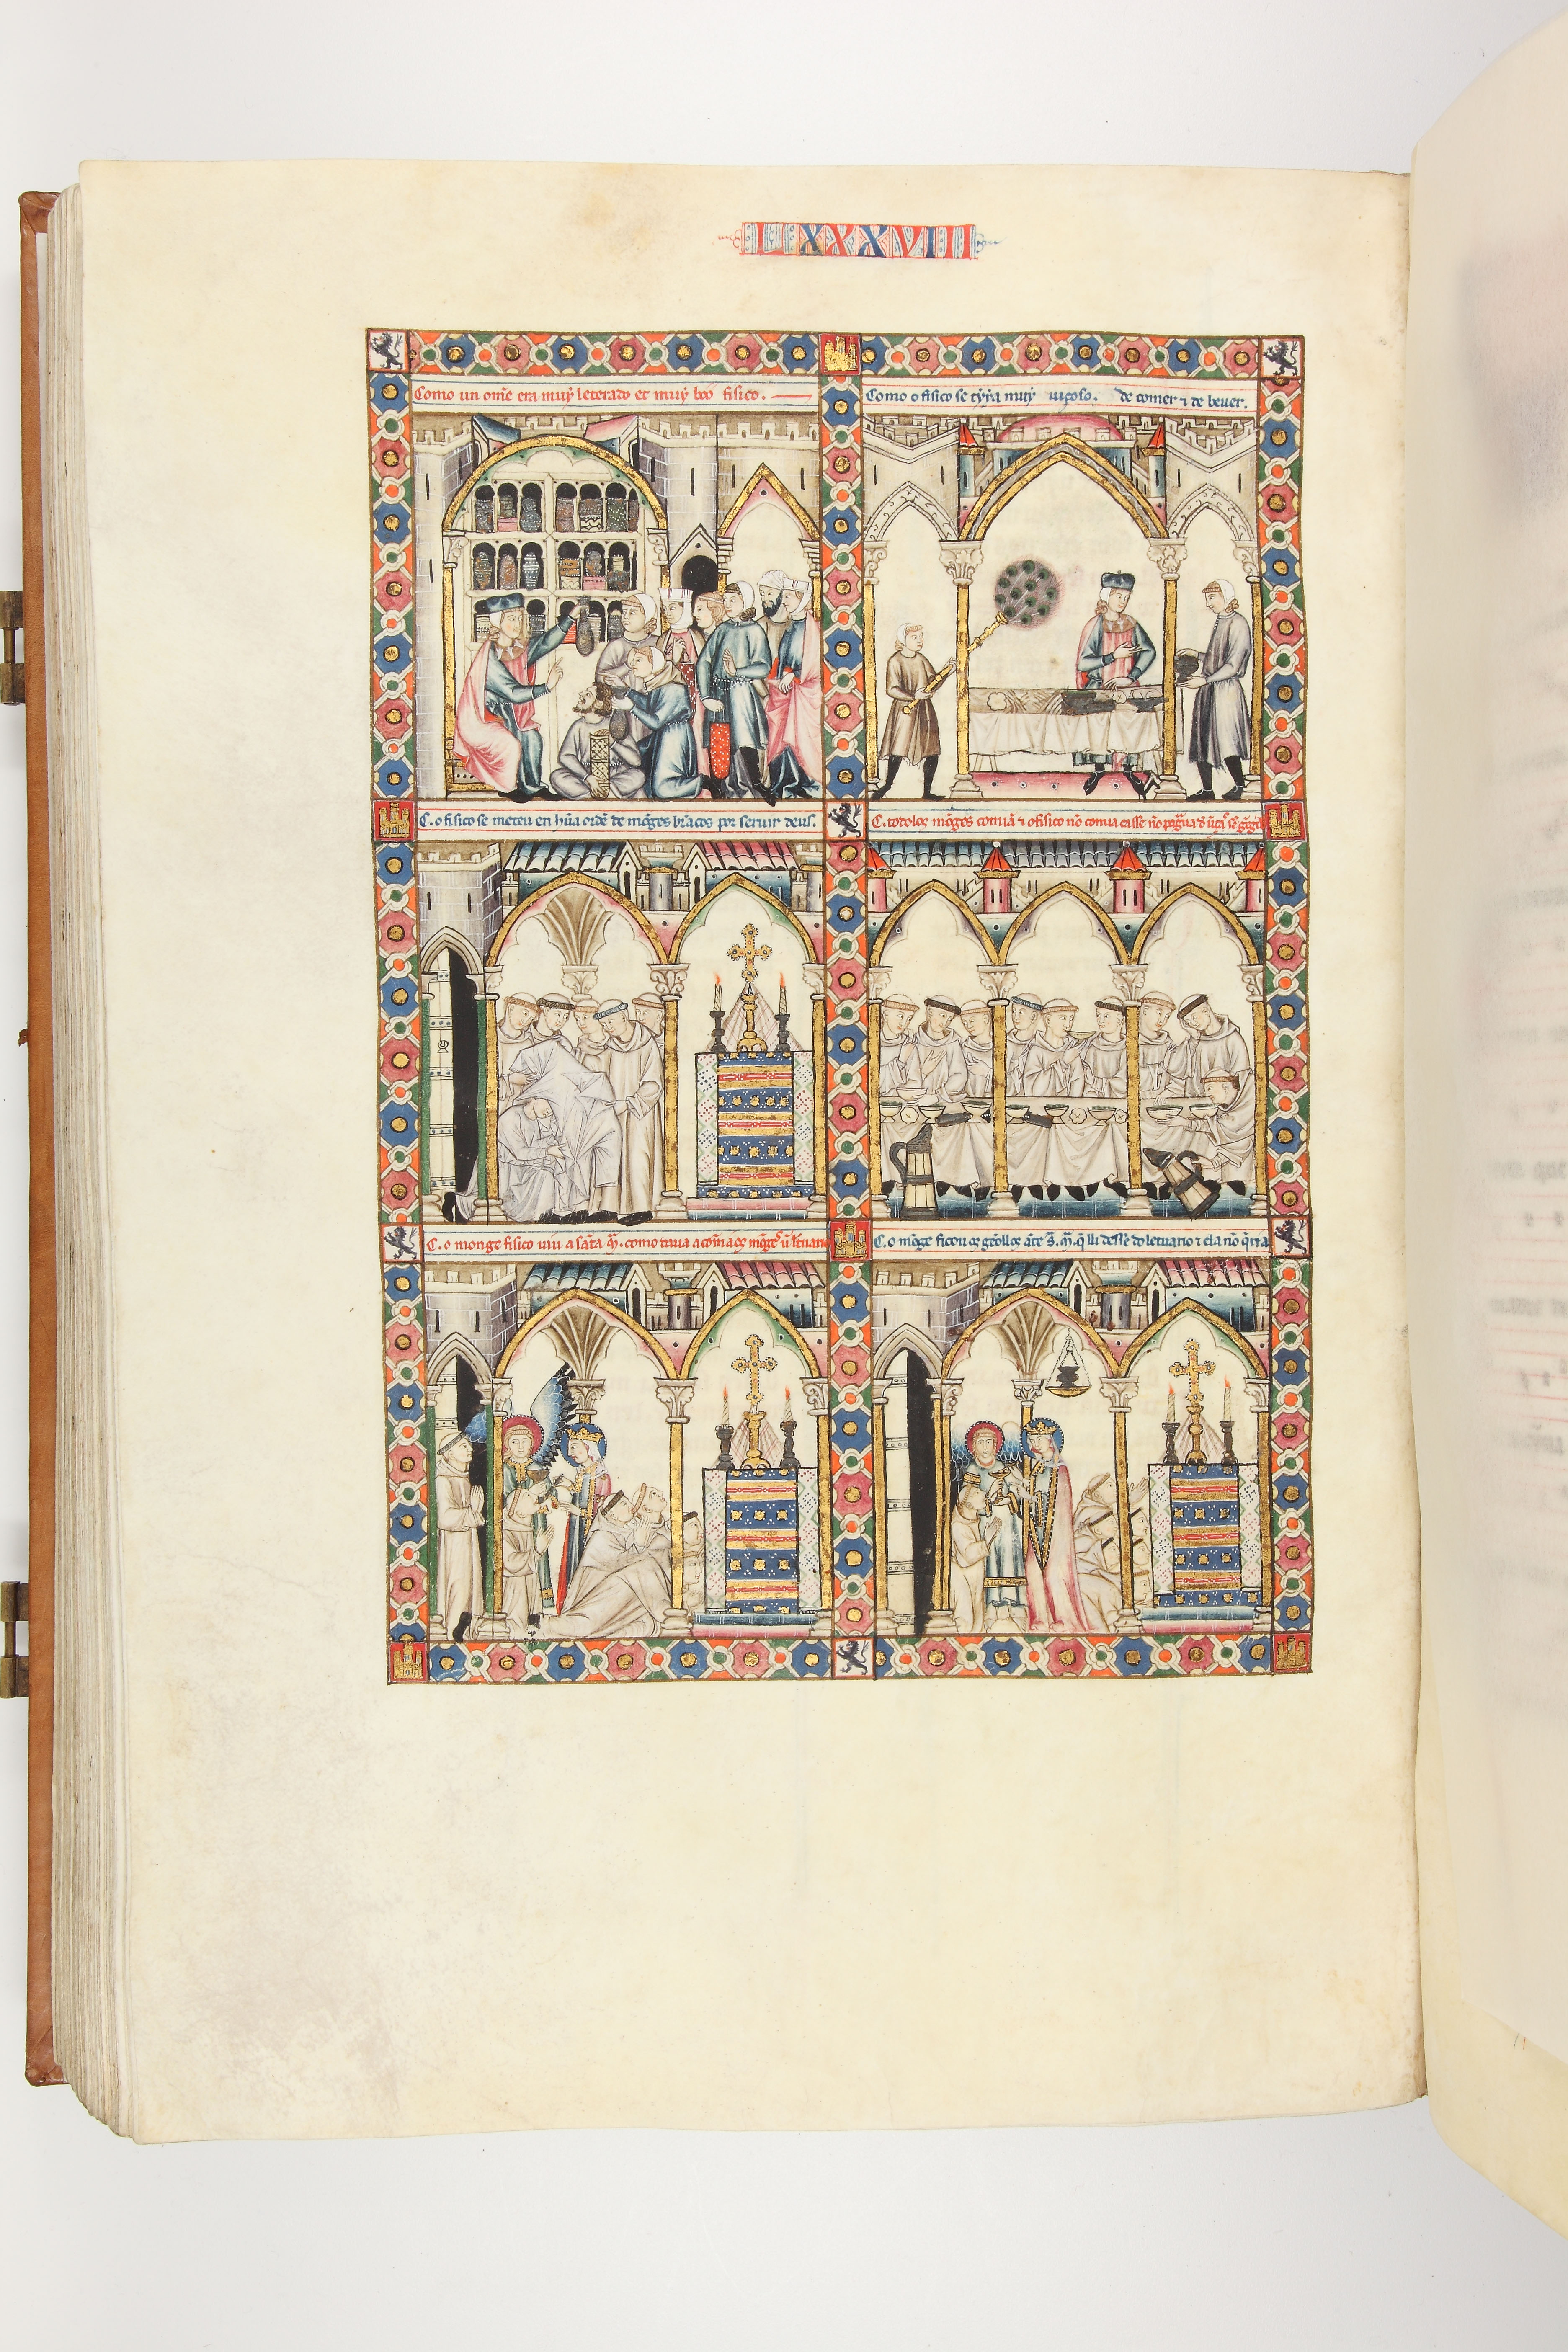 LXXXVIII
Como un ome᷉ era muy leterado et muy bõo fisico.
Como o fisico se tijra muy viçoso. de comer ⁊ de beuer.
C. o fisico se meteu en hũa ordẽ de mõges brãcos por seruir deus.
C. todolos mõges comiã ⁊ o fisico nõ comia
C. o monge fisico uiu a santa M̃. como daua a comer aos mõges
C. o mõge ficou os geollos ante S. M̃. q̃ lli desse do letuario ⁊ ela nõ q̃ria